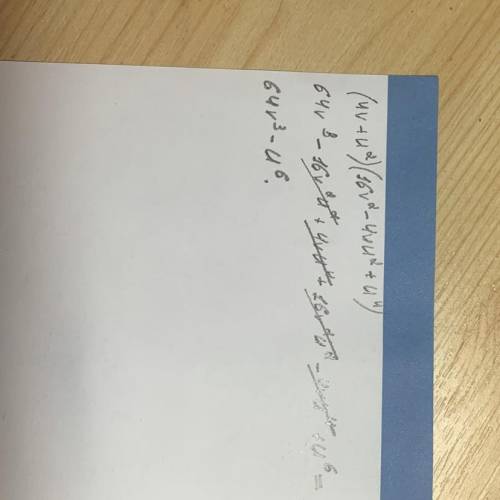 (4v+u²)(16v²-4vu²+u⁴)
64v³-16v²u²+4vu⁴+16v²u²-4vu⁴+u⁶=
64v³-u⁶.